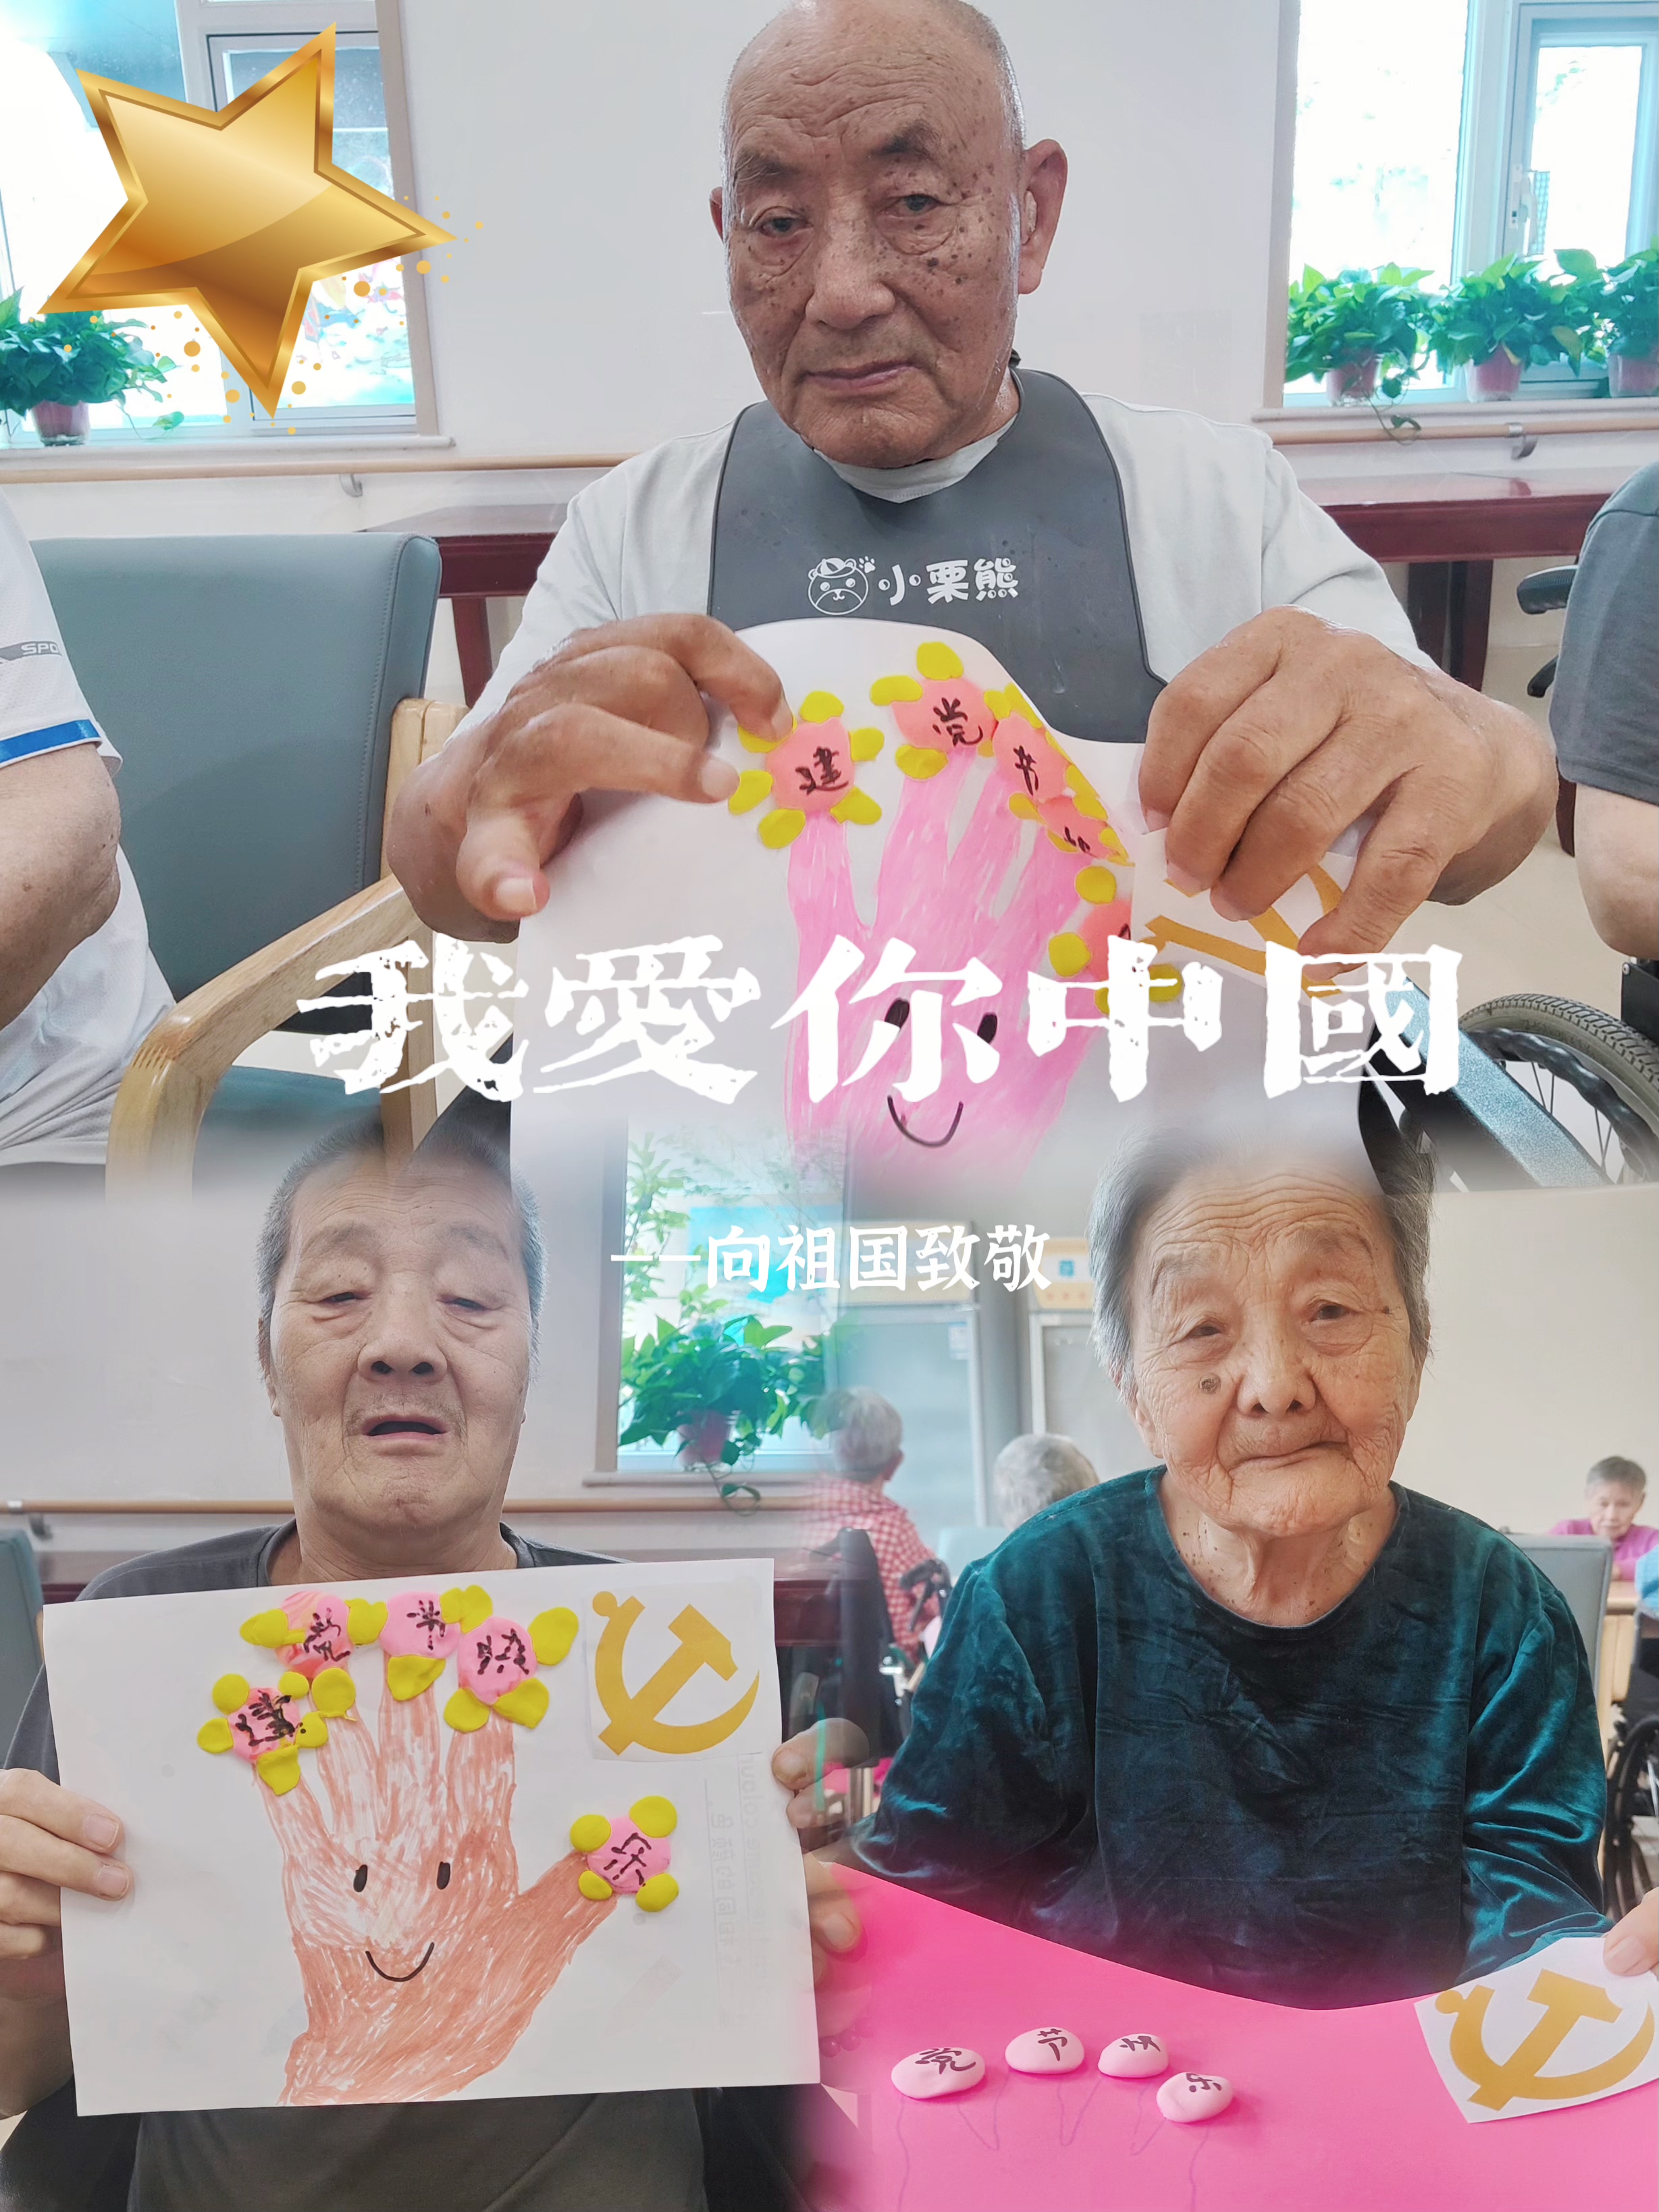 小栗熊
建
党
节
我愛你中國
——向祖国致敬
党
节
建
乐
党
节
乐